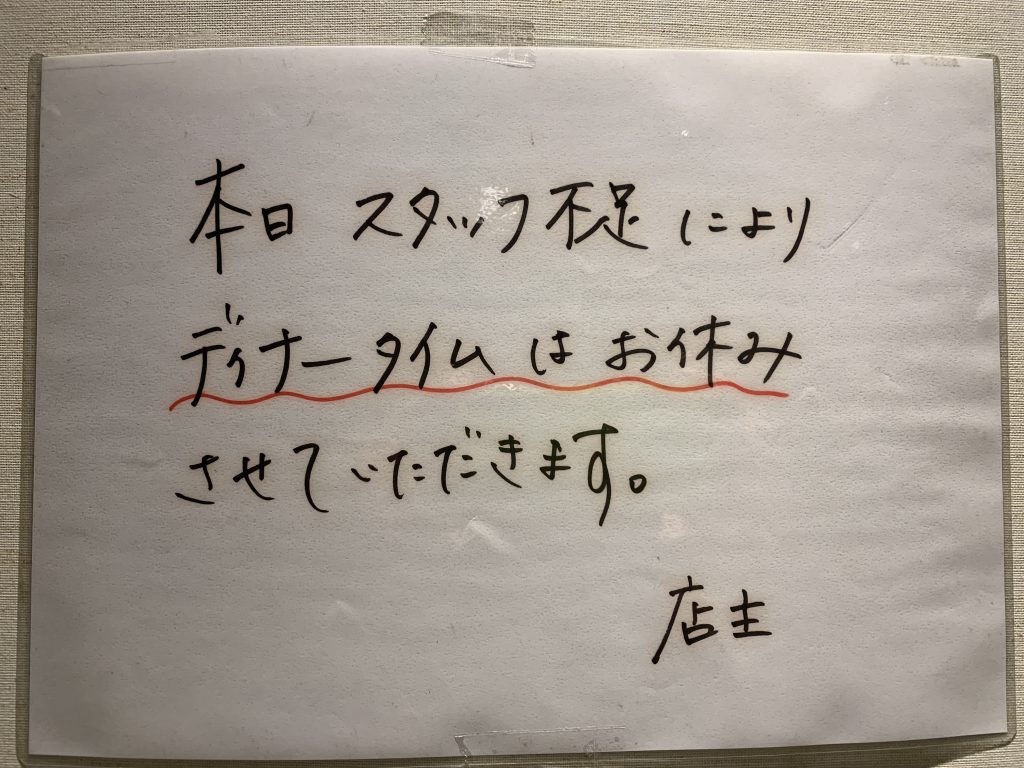 本日 スタッフ不足により
ディナータイムはお休み
させていただきます。
店主